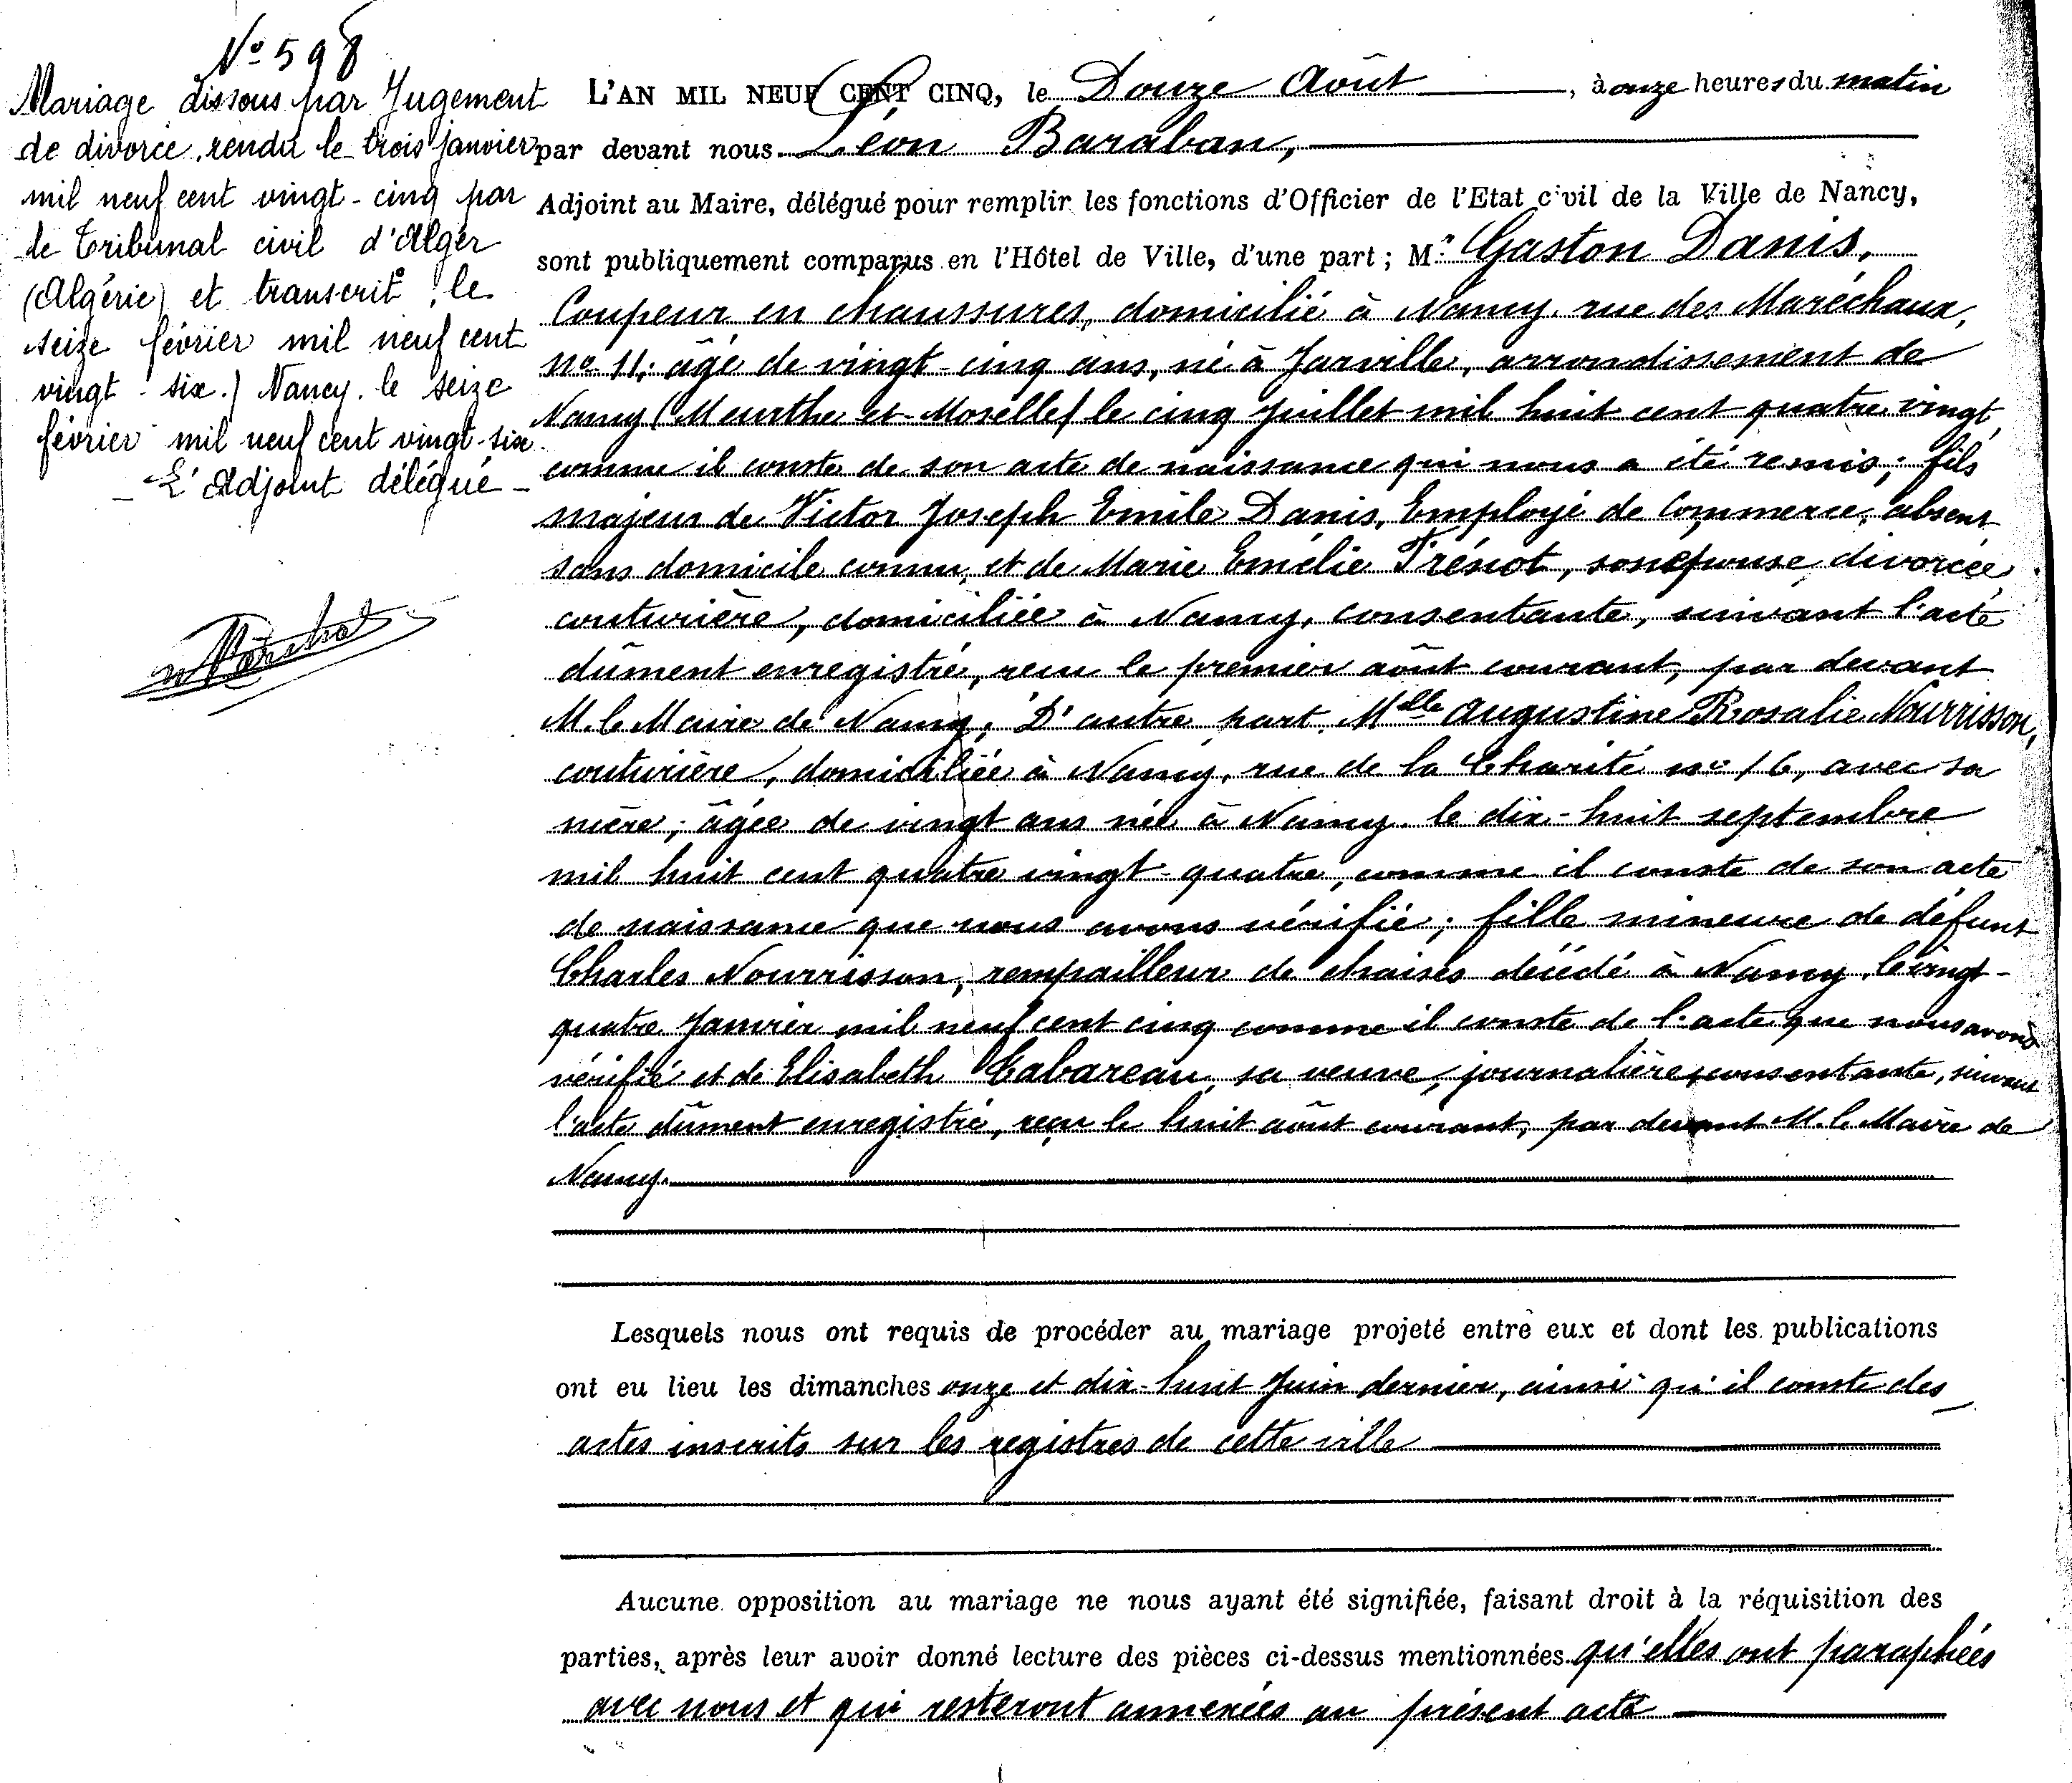 No 598
Mariage dissous par Jugement
de divorce, rendu le trois janvier
mil neuf cent vingt-cinq par
le Tribunal civil d'Alger
(Algérie) et transcrit le
seize février mil neuf cent
vingt-six.) Nancy, le seize
février mil neuf cent vingt-six.
L'Adjoint délégué
L'AN MIL NEUF CENT CINQ, le Douze Août, à onze heures du matin
par devant nous Léon Baraban,
Adjoint au Maire, délégué pour remplir les fonctions d'Officier de l'Etat civil de la Ville de Nancy,
sont publiquement comparus en l'Hôtel de Ville, d'une part ; Mr Gaston Danis,
Coupeur en chaussures, domicilié à Nancy, rue des Maréchaux,
no 11, âgé de vingt-cinq ans, né à Jarville, arrondissement de
Nancy (Meurthe et Moselle) le cinq Juillet mil huit cent quatre vingt,
comme il conste de son acte de naissance qui nous a été remis ; fils
majeur de Victor Joseph Emile Danis, Employé de Commerce, absent
sans domicile connu, et de Marie Emélie Trénot, son épouse divorcée
couturière, domiciliée à Nancy, consentante, suivant l'acte
dûment enregistré, reçu le premier août courant, par devant
M. le Maire de Nancy ; D'autre part, Mlle Augustine Rosalie Nourrisson,
couturière, domiciliée à Nancy, rue de la Charité no 16, avec sa
mère ; âgée de vingt ans née à Nancy, le dix-huit septembre
mil huit cent quatre vingt-quatre, comme il conste de son acte
de naissance que nous avons vérifié ; fille mineure de défunt
Charles Nourrisson, rempailleur de chaises décédé à Nancy, le vingt-
quatre Janvier mil neuf cent cinq comme il conste de l'acte que nous avons
vérifié et de Elisabeth Cabareau, sa veuve, journalière, consentante, suivant
l'acte dûment enregistré, reçu le huit août courant, par devant M. le Maire de
Nancy.
Lesquels nous ont requis de procéder au mariage projeté entre eux et dont les publications
ont eu lieu les dimanches onze et dix-huit Juin dernier, ainsi qu'il conste des
actes inscrits sur les registres de cette ville
Aucune opposition au mariage ne nous ayant été signifiée, faisant droit à la réquisition des
parties, après leur avoir donné lecture des pièces ci-dessus mentionnées qu'elles ont paraphées
avec nous et qui resteront annexées au présent acte